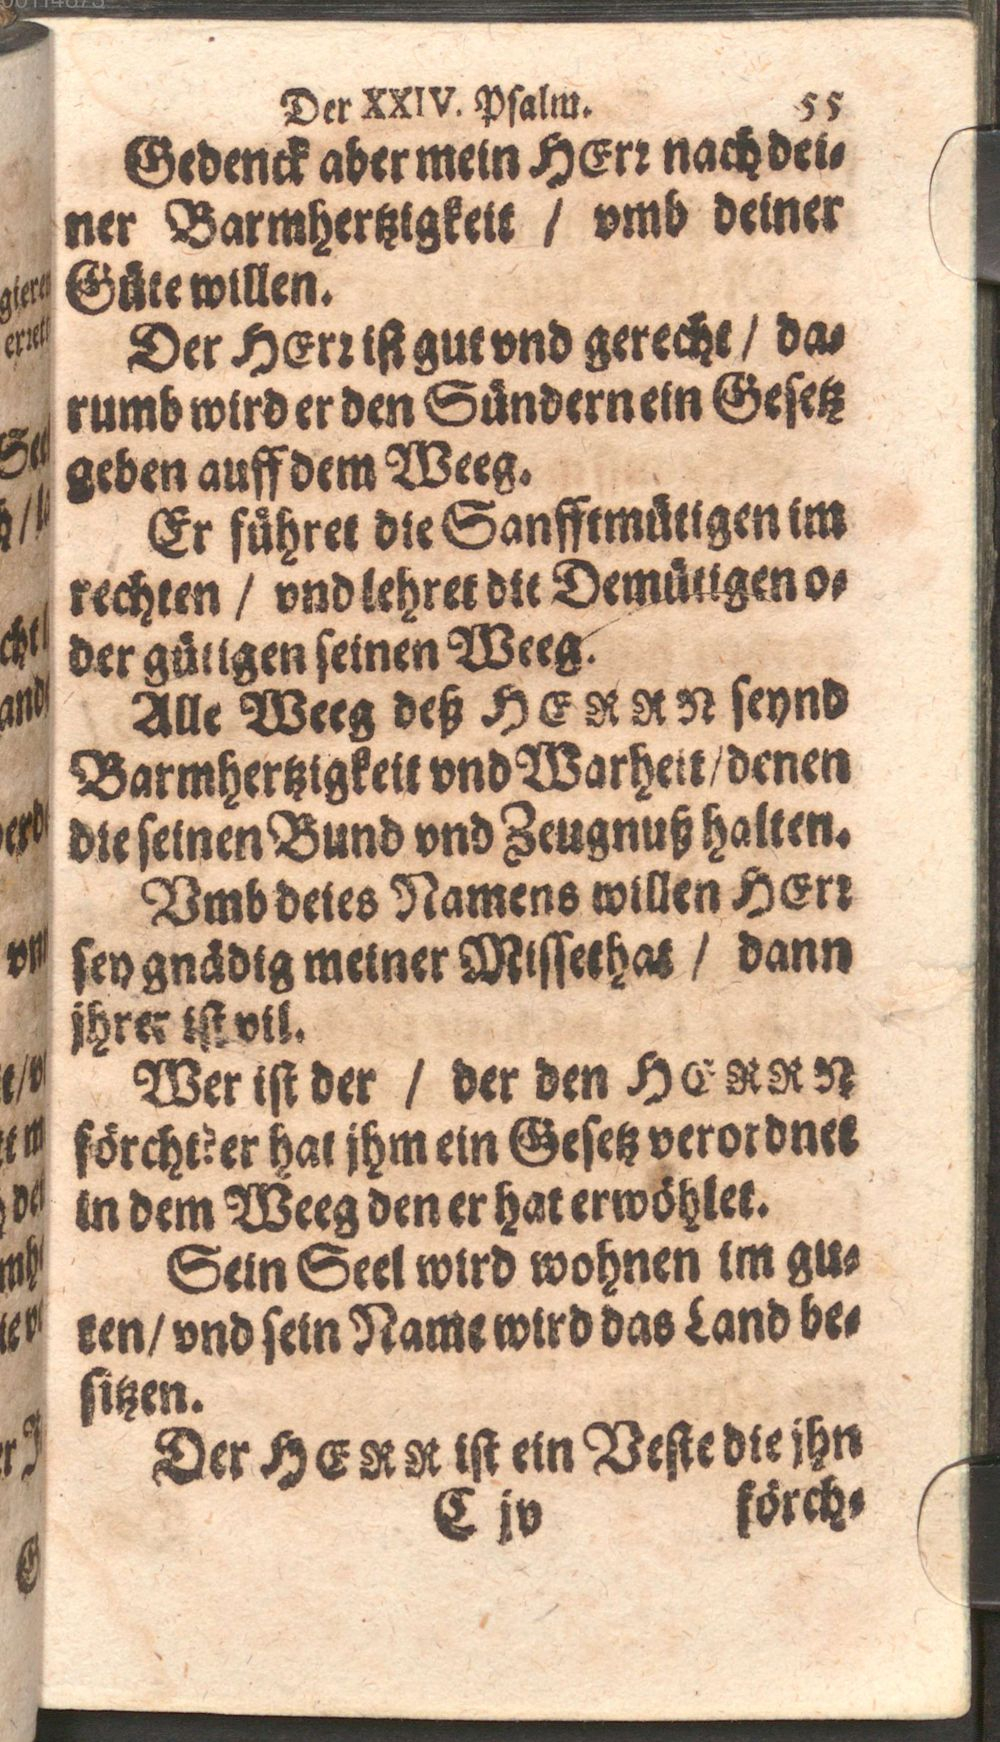 Der XXIV. Psalm. 55
Gedenck aber mein HErr nach dei-
ner Barmhertzigkeit / vmb deiner
Güte willen.
Der HErr ist gut vnd gerecht / da-
rumb wird er den Sündern ein Gesetz
geben auff dem Weeg.
Er führet die Sanfftmütigen im
rechten / vnd lehret die Demütigen o-
der gütigen seinen Weeg.
Alle Weeg deß HERRN seynd
Barmhertzigkeit vnd Warheit / denen
die seinen Bund vnd Zeugnuß halten.
Vmb deies Namens willen HErr
sey gnädig meiner Missethat / dann
jhrer ist vil.
Wer ist der / der den HERRN
förcht? er hat jhm ein Gesetz verordnet
in dem Weeg den er hat erwöhlet.
Sein Seel wird wohnen im gu-
ten / vnd sein Name wird das Land be-
sitzen.
Der HERR ist ein Veste die jhn
C jv förch-